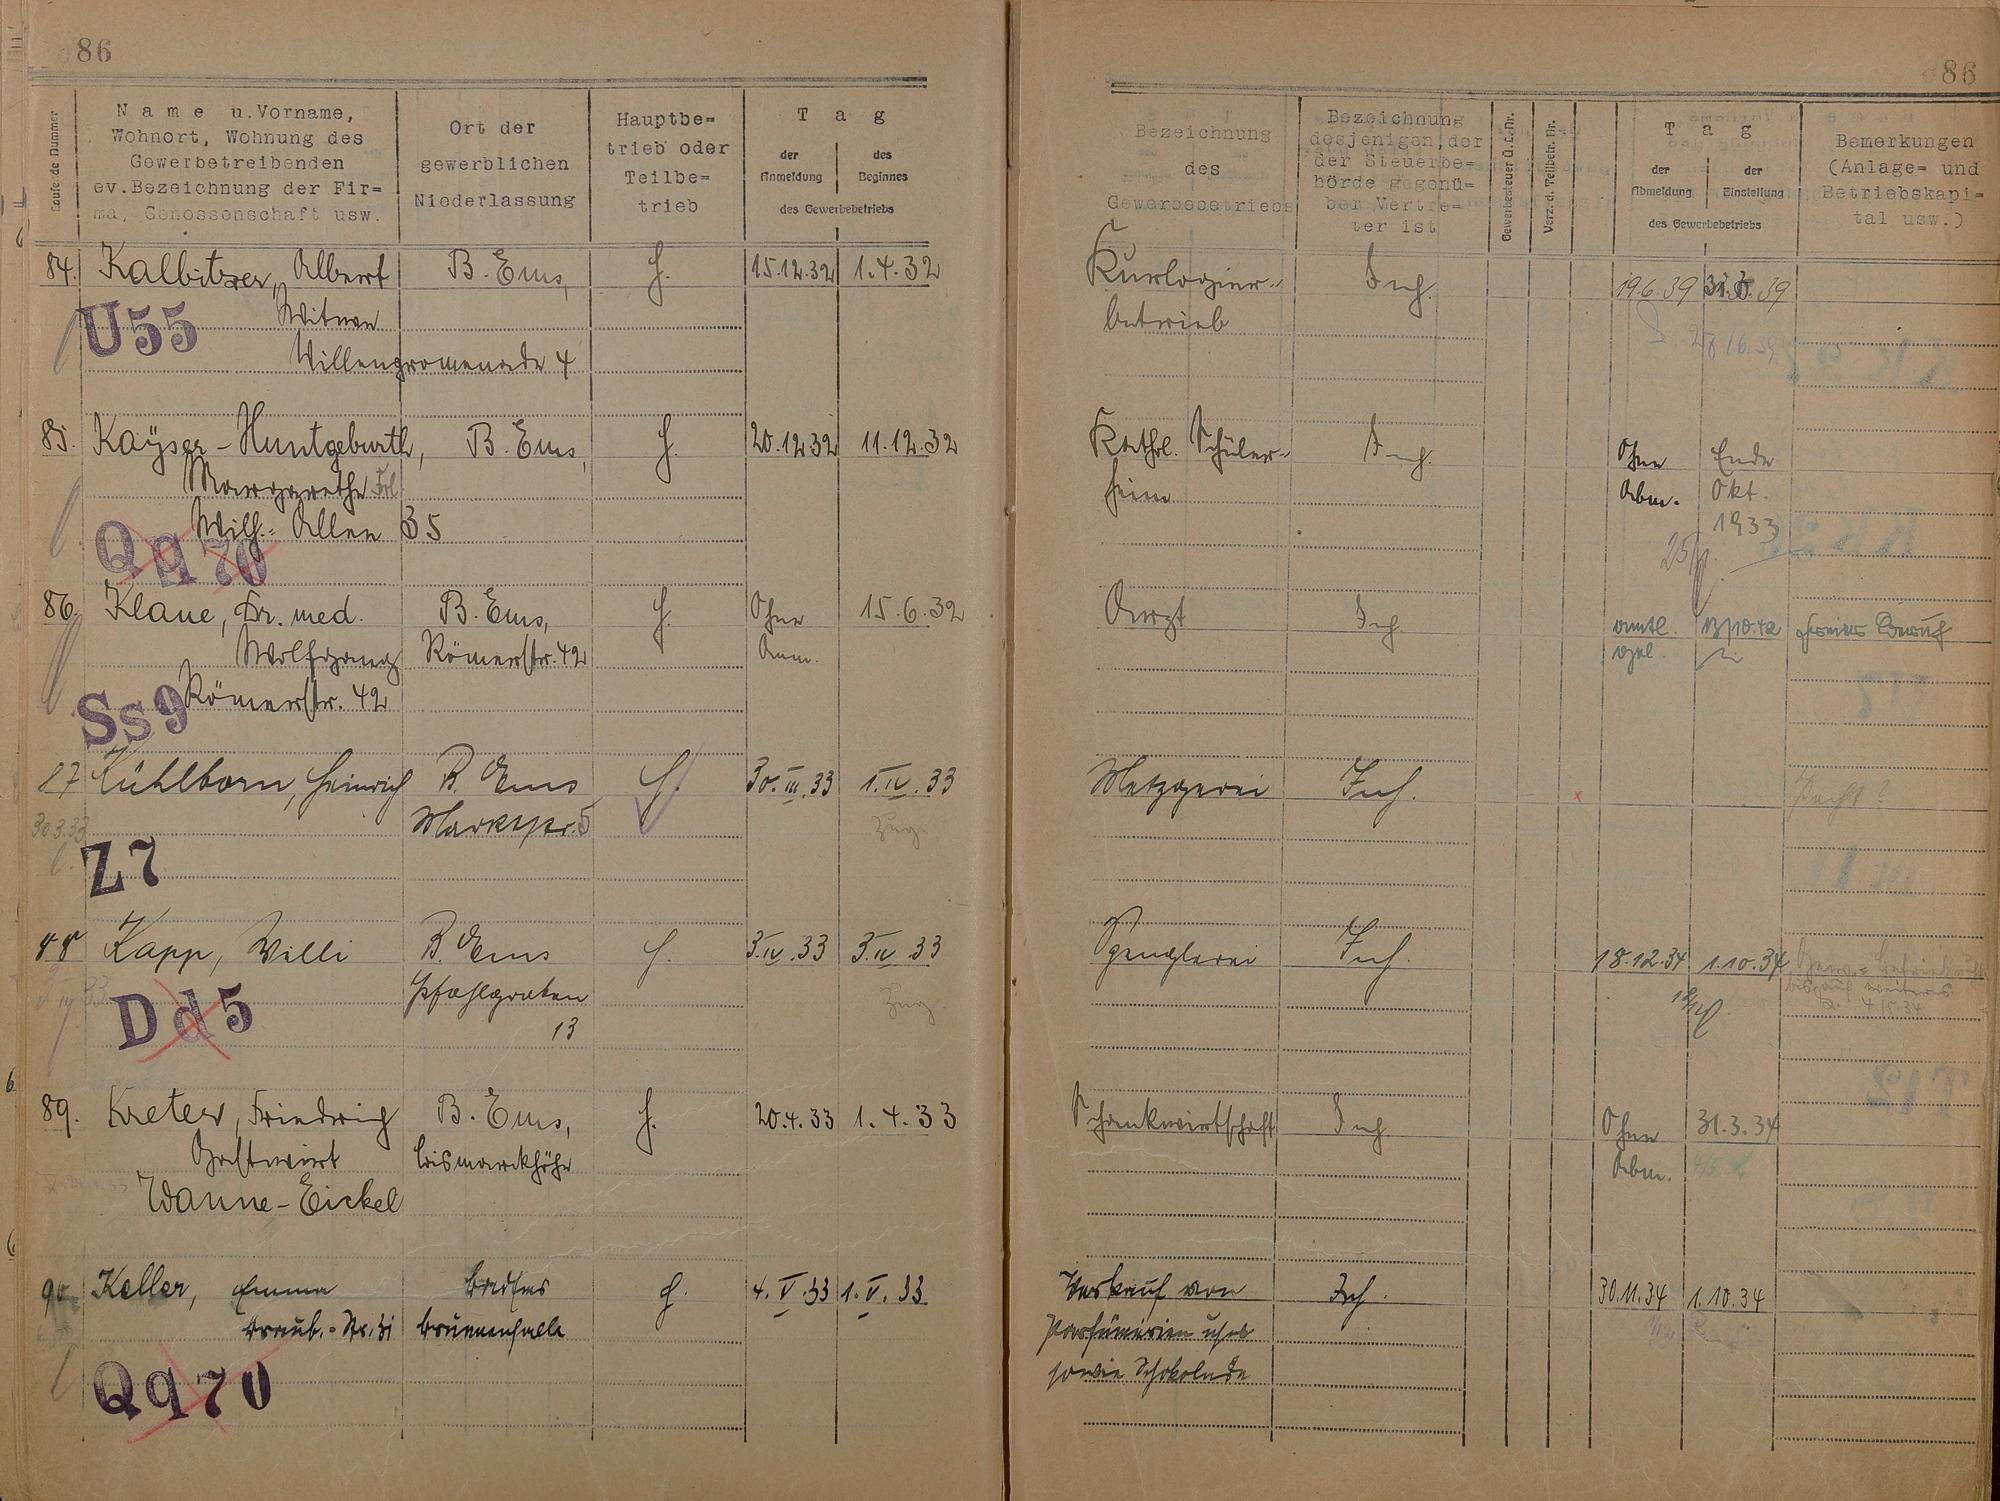 86
86
Laufende Nummer
Name u.Vorname,
Wohnort, Wohnung des
Gewerbetreibenden
ev.Bezeichnung der Fir=
ma, Genossenschaft usw.
Ort der
gewerblichen
Niederlassung
Hauptbe=
trieb oder
Teilbe=
trieb
Tag
der
Anmeldung
des
Beginnes
des Gewerbebetriebs
Bezeichnung
des
Gewerbebetriebs
Bezeichnung
desjenigen,der
der Steuerbe=
hörde gegenü=
ber Vertre=
ter ist
Gewerbesteuer Ü.L.Nr.
Verz.d. Teilbetr. Nr.
Tag
der
Abmeldung
der
Einstellung
des Gewerbebetriebs
Bemerkungen
(Anlage= und
Betriebskapi=
tal usw.)
84. Kalbitzer, Albert B. Ems, H. 15.12.32 1.4.32 Kurlogier- Inh. 19.6.39 39
Witwe betrieb
U55
Villenpromenade 4
85. Kaÿser-Huntgeburth, B. Ems, H. 20.12.32 11.12.32 Kathl. Schüler- Inh. Ohne Ende
Margarethe Frl heim Abm. Okt.
Wilh.= Allee 35 1933
Qq70
86. Klaue, Dr. med. B. Ems, H. Ohne 15.6.32 Arzt Inh. amtl. 13/10.42 freier Beruf
Wolfgang Römerstr. 42 Anm. gel.
Römerstr. 42
Ss9
87 Kühlborn, Heinrich B. Ems H. 30.III.33 1.IV.33 Metzgerei Inh. Pacht?
30.3.33 Marktstr. 5 Zug.
Z7
88 Kapp, Willi B. Ems H. 3.IV.33 3.IV.33 Spenglerei Inh. 18.12.34 1.10.34
Pfahlgraben Zug. bis auf weiteres
13 4/5.34
Dd5
89. Kreter, Friedrich B. Ems, H. 20.4.33 1.4.33 Schankwirtschaft Inh. Ohne 31.3.34
Gastwirt Bismarckhöhe Abm.
Wanne-Eickel
90 Keller, Emma Bad Ems H. 4.V.33 1.V.33 Verkauf von Inh. 30.11.34 1.10.34
Graub.-Str. 31 Brunnenhalle Parfümerien usw
sowie Schokolade
Qq70